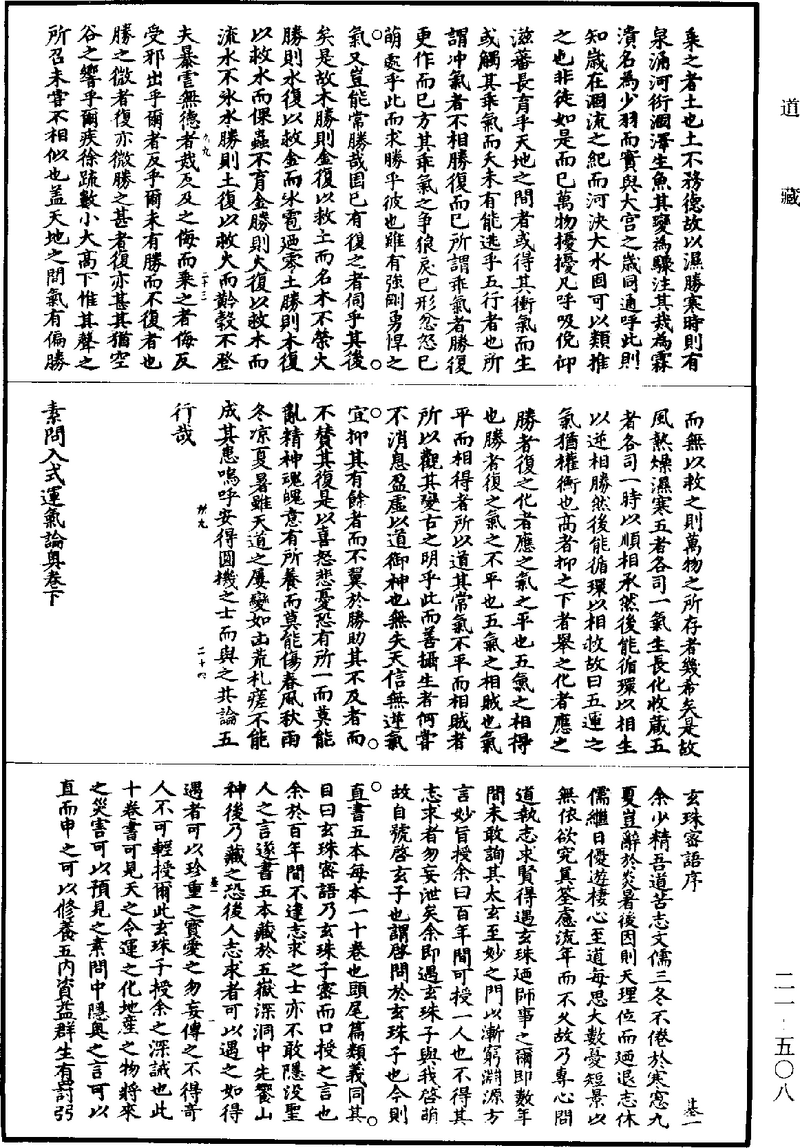 道藏
二一·五〇八
乘之者土也土不務德故以濕勝寒時則有
泉涌河衍涸澤生魚其變為驟注其災為霖
潰名為少羽而實與大宮之歲同通呼此則
知歲在涸流之紀而河決大水固可以類推
之也非徒如是而已萬物擾擾凡呼吸俛仰
滋蕃長育乎天地之間者或得其衝氣而生
或觸其乖氣而夭未有能逃乎五行者也所
謂沖氣者不相勝復而已所謂乖氣者勝復
更作而已方其乖氣之爭狼戾已形忿怒已
萌處乎此而求勝乎彼也雖有強剛勇悍之
氣又豈能常勝哉固已有復之者伺乎其後
矣是故木勝則金復以救土而名木不榮火
勝則水復以救金而冰雹迺零土勝則木復
以救水而倮蟲不育金勝則火復以救木而
流水不冰水勝則土復以救火而黅穀不登
夫暴虐無德者災反及之侮而乘之者侮反
受邪出乎爾者反乎爾未有勝而不復者也
勝之微者復亦微勝之甚者復亦甚其猶空
谷之響乎爾疾徐疏數小大高下惟其聲之
所召未嘗不相似也蓋天地之間氣有偏勝
而無以救之則萬物之所存者幾希矣是故
風熱燥濕寒五者各司一氣生長化收藏五
者各司一時以順相承然後能循環以相生
以逆相勝然後能循環以相救故曰五運之
氣猶權衡也高者抑之下者舉之化者應之
勝者復之化者應之氣之平也五氣之相得
也勝者復之氣之不平也五氣之相賊也氣
平而相得者所以道其常氣不平而相賊者
所以觀其變古之明乎此而善攝生者何嘗
不消息盈虛以道御神也無失天信無逆氣
宜抑其有餘者而不翼於勝助其不及者而
不贊其復是以喜怒悲憂恐有所一而莫能
亂精神魂魄意有所養而莫能傷春風秋雨
冬凉夏暑雖天道之屢變如出荒札瘥不能
成其患嗚呼安得圓機之士而與之共論五
行哉
素問入式運氣論奧卷下
玄珠密語序
余少精吾道苦志文儒三冬不倦於寒窓九
夏豈辭於炎暑後因則天理位而迺退志休
儒繼日優遊棲心至道每思大數憂短景以
無依欲究真筌慮流年而不久故乃專心問
道執志求賢得遇玄珠迺師事之爾即數年
間未敢詢其太玄至妙之門以漸窮淵源方
言妙旨授余曰百年間可授一人也不得其
志求者勿妄泄矣余即遇玄珠子與我啓萌
故自號啓玄子也謂啓問於玄珠子也今則
直書五本每本一十卷也頭尾篇類義同其
目曰玄珠密語乃玄珠子密而口授之言也
余於百年間不逢志求之士亦不敢隱沒聖
人之言遂書五本藏於五嶽深洞中先饗山
神後乃藏之恐後人志求者可以遇之如得
遇者可以珍重之寶愛之勿妄傳之不得奇
人不可輕授爾此玄珠子授余之深誡也此
十卷書可見天之令運之化地産之物將來
之災害可以預見之素問中隱奧之言可以
直而申之可以修養五內資益群生有罰弼